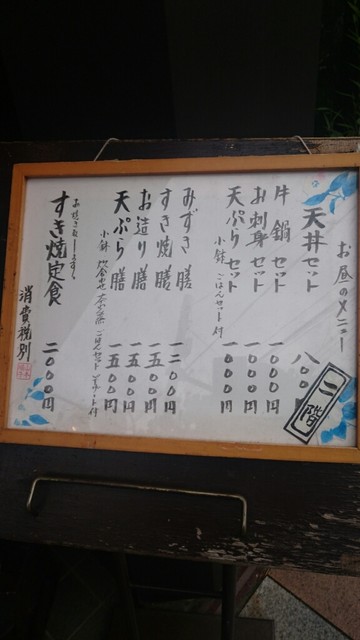 お昼のメニュー
二階
天丼セット 八〇〇
牛鍋セット 一〇〇〇円
お刺身セット 一〇〇〇円
天ぷらセット 一〇〇〇円
小鉢 ごはんセット付
みずき膳 一二〇〇円
すき焼膳 一五〇〇円
お造り膳 一五〇〇円
天ぷら膳 一五〇〇円
小鉢
すき焼定食 二〇〇〇円
消費税別